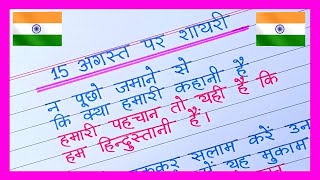 15 अगस्त पर शायरी
न पूछो जमाने से
कि क्या हमारी कहानी है
हमारी पहचान तो यही है कि
हम हिन्दुस्तानी हैं।
सलाम करें उन
यह मुकाम